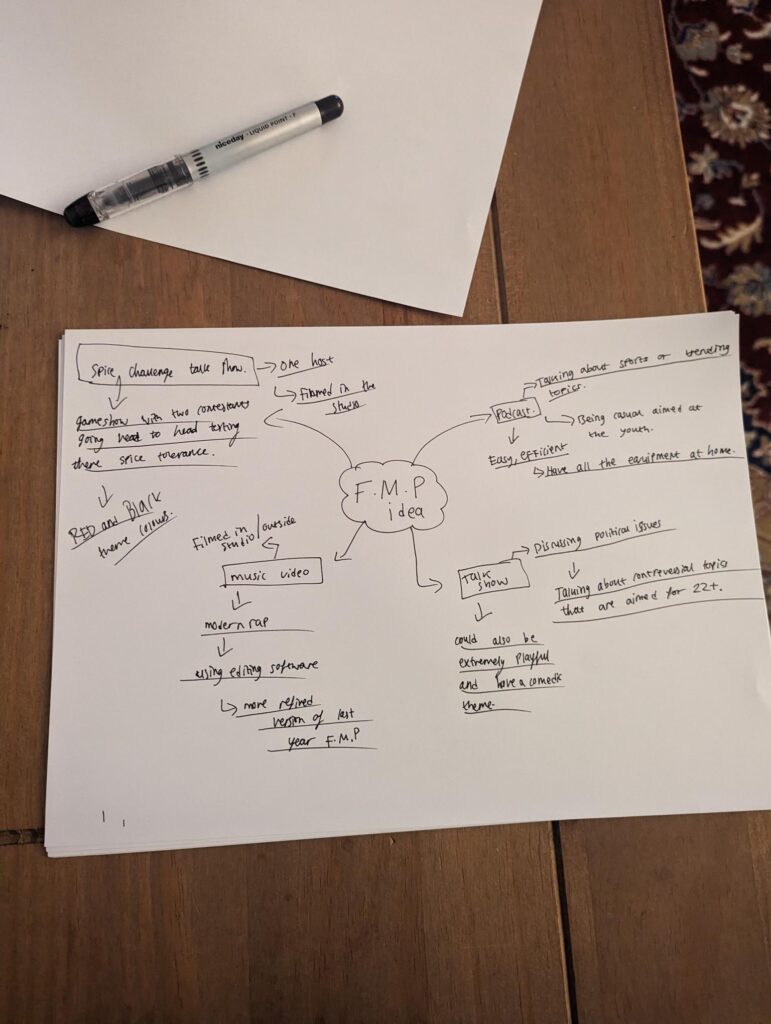 niceday · LIQUID POINT · F
Spice, challenge talk show.
one host
Filmed in the
studio
gameshow with two contestants
going head to head testing
there spice tolerance.
RED and Black
theme colours.
F.M.P
idea
Podcast.
Talking about sports or trending
topics.
Being casual aimed at
the youth.
Easy, efficient
Have all the equipment at home.
Filmed in
studio/outside
music video
modern rap
using editing software
more refined
version of last
year F.M.P
Talk
show
Discussing political issues
Talking about contreversal topics
that are aimed for 22+.
could also be
extremely playful
and have a comedic
theme.